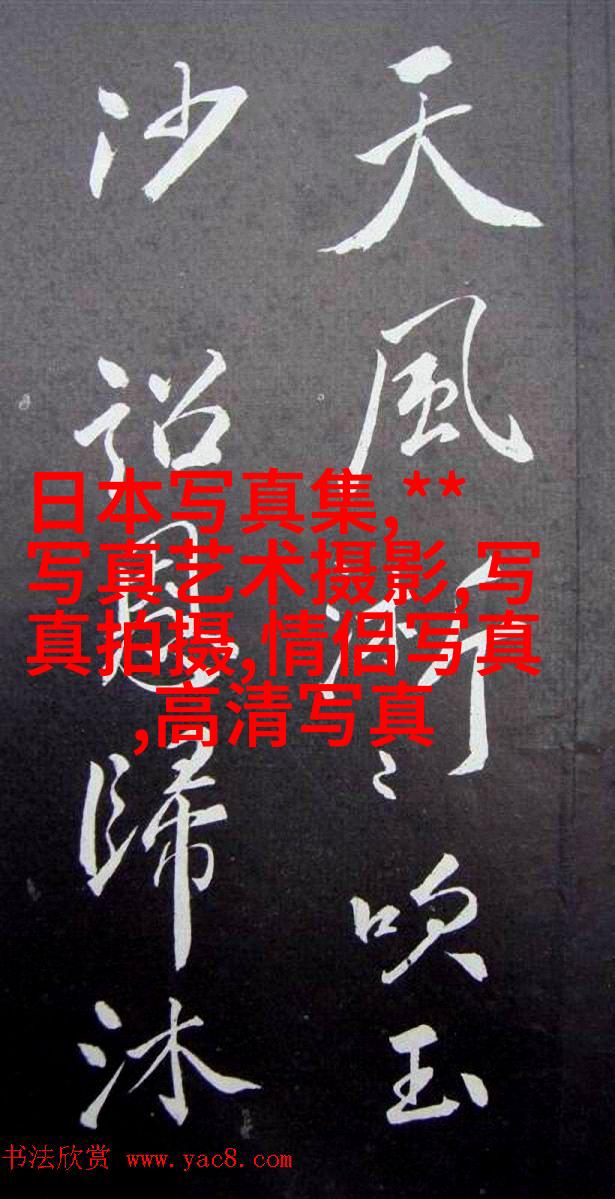 天風淅〻吹玉
沙詔恩歸沐
日本写真集,**
写真艺术摄影,写
真拍摄,情侣写真
,高清写真
书法欣赏 www.yac8.com